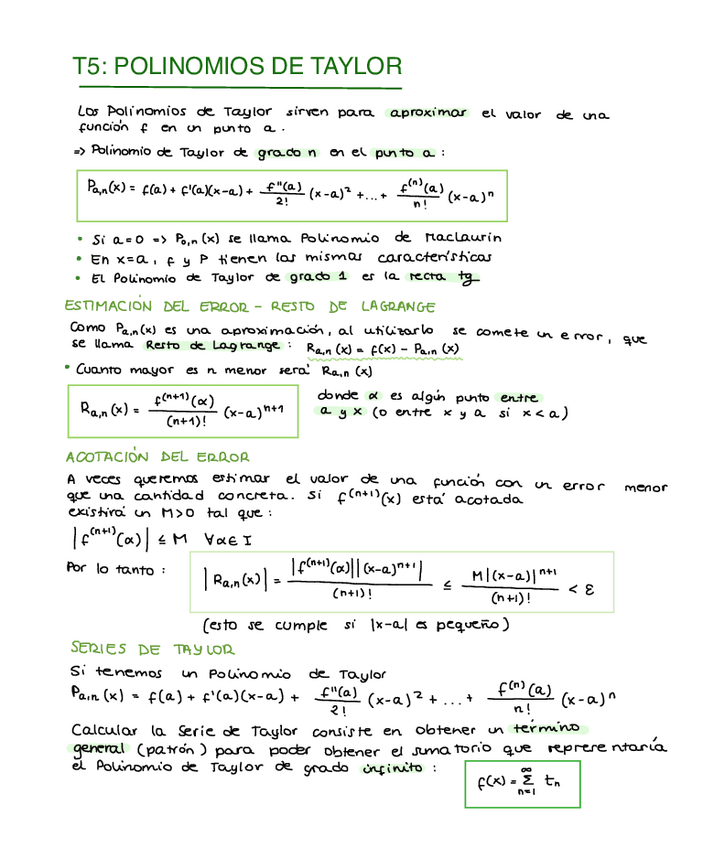 T5: POLINOMIOS DE TAYLOR
Los Polinomios de Taylor sirven para aproximar el valor de una
función f en un punto a.
=> Polinomio de Taylor de grado n en el punto a :
Pa,n(x) = f(a) + f'(a)(x-a) + f''(a)/2! (x-a)² + ... + f⁽ⁿ⁾(a)/n! (x-a)ⁿ
• Si a=0 => P₀,n (x) se llama Polinomio de Maclaurin
• En x=a, f y P tienen las mismas características
• El Polinomio de Taylor de grado 1 es la recta tg
ESTIMACIÓN DEL ERROR - RESTO DE LAGRANGE
Como Pa,n(x) es una aproximación, al utilizarlo se comete un error, que
se llama Resto de Lagrange : Ra,n (x) = f(x) - Pa,n (x)
• Cuanto mayor es n menor será Ra,n (x)
Ra,n (x) = f⁽ⁿ⁺¹⁾(α)/(n+1)! (x-a)ⁿ⁺¹
donde α es algún punto entre
a y x (o entre x y a si x<a)
ACOTACIÓN DEL ERROR
A veces queremos estimar el valor de una función con un error menor
que una cantidad concreta. Si f⁽ⁿ⁺¹⁾(x) está acotada
existirá un M>0 tal que :
|f⁽ⁿ⁺¹⁾(α)| ≤ M ∀α∈I
Por lo tanto : |Ra,n(x)| = |f⁽ⁿ⁺¹⁾(α)||(x-a)ⁿ⁺¹|/(n+1)! ≤ M|(x-a)|ⁿ⁺¹/(n+1)! < ε
(esto se cumple si |x-a| es pequeño)
SERIES DE TAYLOR
Si tenemos un Polinomio de Taylor
Pa,n (x) = f(a) + f'(a)(x-a) + f''(a)/2! (x-a)² + ... + f⁽ⁿ⁾(a)/n! (x-a)ⁿ
Calcular la Serie de Taylor consiste en obtener un término
general (patrón) para poder obtener el sumatorio que representaría
el Polinomio de Taylor de grado infinito :
f(x) = ∞ Σ n=1 tn